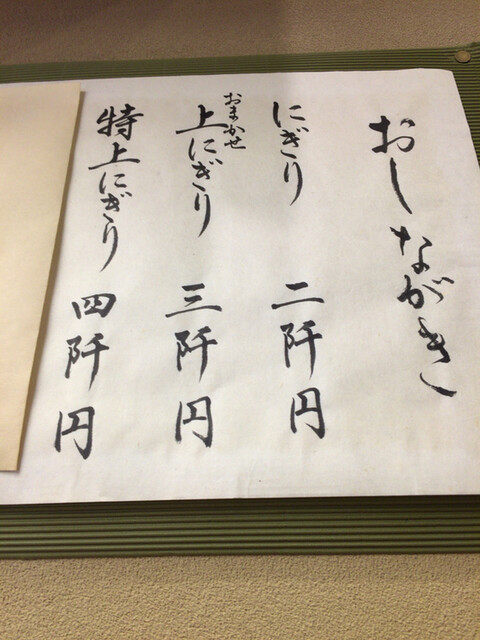 おしながき
にぎり 二阡円
おまかせ
上にぎり 三阡円
特上にぎり 四阡円